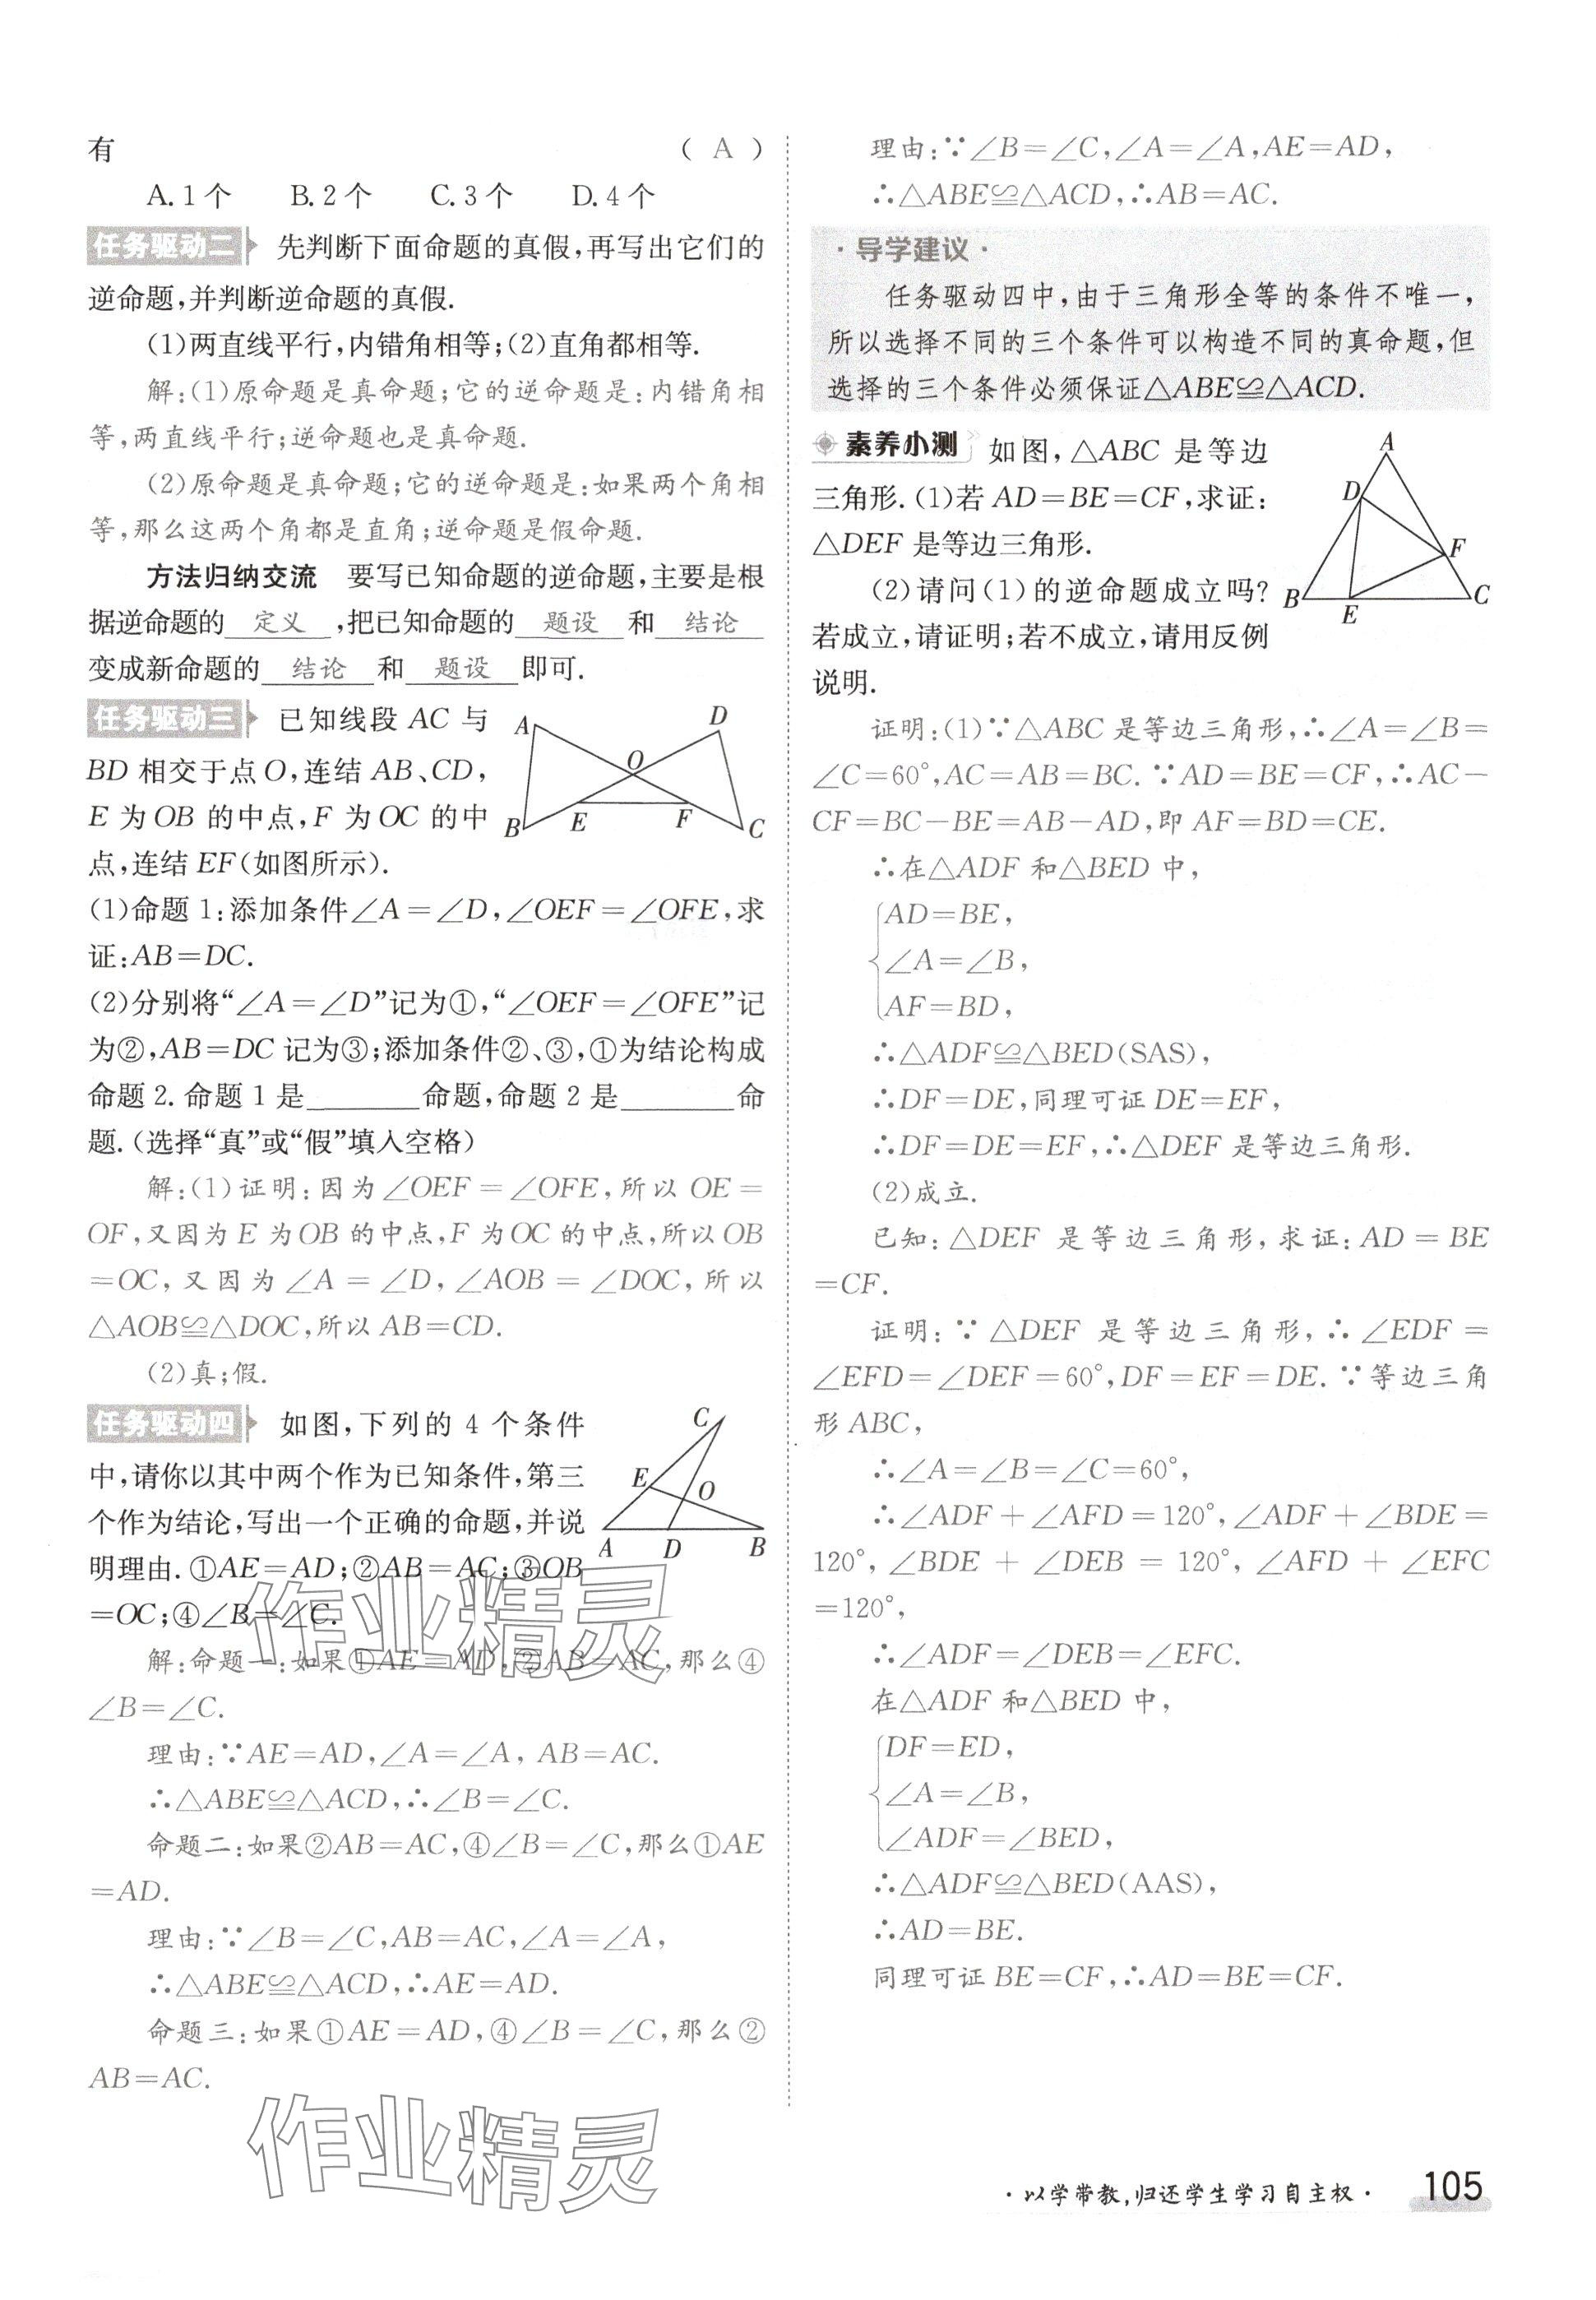 有 （ A ）
A. 1个 B. 2个 C. 3个 D. 4个
任务驱动二 先判断下面命题的真假,再写出它们的
逆命题,并判断逆命题的真假.
(1)两直线平行,内错角相等;(2)直角都相等.
解:(1)原命题是真命题;它的逆命题是:内错角相
等,两直线平行;逆命题也是真命题.
(2)原命题是真命题;它的逆命题是:如果两个角相
等,那么这两个角都是直角;逆命题是假命题.
方法归纳交流 要写已知命题的逆命题,主要是根
据逆命题的 定义 ,把已知命题的 题设 和 结论
变成新命题的 结论 和 题设 即可.
任务驱动三 已知线段 AC 与
BD 相交于点O,连结 AB、CD,
E 为OB 的中点,F 为OC 的中
点,连结EF(如图所示).
A D O B E F C
(1)命题1:添加条件∠A=∠D,∠OEF=∠OFE,求
证:AB=DC.
(2)分别将“∠A=∠D”记为①,“∠OEF=∠OFE”记
为②,AB=DC记为③;添加条件②、③,①为结论构成
命题2. 命题1是________命题,命题2是________命
题.(选择“真”或“假”填入空格)
解:(1)证明:因为∠OEF=∠OFE,所以 OE=
OF,又因为E为OB的中点,F为OC的中点,所以OB
=OC,又因为∠A=∠D,∠AOB=∠DOC,所以
△AOB≌△DOC,所以AB=CD.
(2)真;假.
任务驱动四 如图,下列的 4 个条件
中,请你以其中两个作为已知条件,第三
个作为结论,写出一个正确的命题,并说
明理由.①AE=AD;②AB=AC;③OB
=OC;④∠B=∠C.
C E O A D B
解:命题一:如果①AE=AD,②AB=AC,那么④
∠B=∠C.
理由:∵AE=AD,∠A=∠A, AB=AC.
∴△ABE≌△ACD,∴∠B=∠C.
命题二:如果②AB=AC,④∠B=∠C,那么①AE
=AD.
理由:∵∠B=∠C,AB=AC,∠A=∠A,
∴△ABE≌△ACD,∴AE=AD.
命题三:如果①AE=AD,④∠B=∠C,那么②
AB=AC.
理由:∵∠B=∠C,∠A=∠A,AE=AD,
∴△ABE≌△ACD,∴AB=AC.
·导学建议·
任务驱动四中,由于三角形全等的条件不唯一,
所以选择不同的三个条件可以构造不同的真命题,但
选择的三个条件必须保证△ABE≌△ACD.
素养小测 如图,△ABC 是等边
三角形.(1)若AD=BE=CF,求证:
△DEF是等边三角形.
(2)请问(1)的逆命题成立吗?
若成立,请证明;若不成立,请用反例
说明.
A D F B E C
证明:(1)∵△ABC是等边三角形,∴∠A=∠B=
∠C=60°,AC=AB=BC.∵AD=BE=CF,∴AC-
CF=BC-BE=AB-AD,即AF=BD=CE.
∴在△ADF和△BED中,
AD=BE,
∠A=∠B,
AF=BD,
∴△ADF≌△BED(SAS),
∴DF=DE,同理可证DE=EF,
∴DF=DE=EF,∴△DEF是等边三角形.
(2)成立.
已知:△DEF 是等边三角形,求证:AD=BE
=CF.
证明:∵△DEF 是等边三角形,∴∠EDF=
∠EFD=∠DEF=60°,DF=EF=DE.∵等边三角
形ABC,
∴∠A=∠B=∠C=60°,
∴∠ADF+∠AFD=120°,∠ADF+∠BDE=
120°,∠BDE+∠DEB=120°,∠AFD+∠EFC
=120°,
∴∠ADF=∠DEB=∠EFC.
在△ADF和△BED中,
DF=ED,
∠A=∠B,
∠ADF=∠BED,
∴△ADF≌△BED(AAS),
∴AD=BE.
同理可证BE=CF,∴AD=BE=CF.
作业精灵
作业精灵
·以学带教,归还学生学习自主权· 105